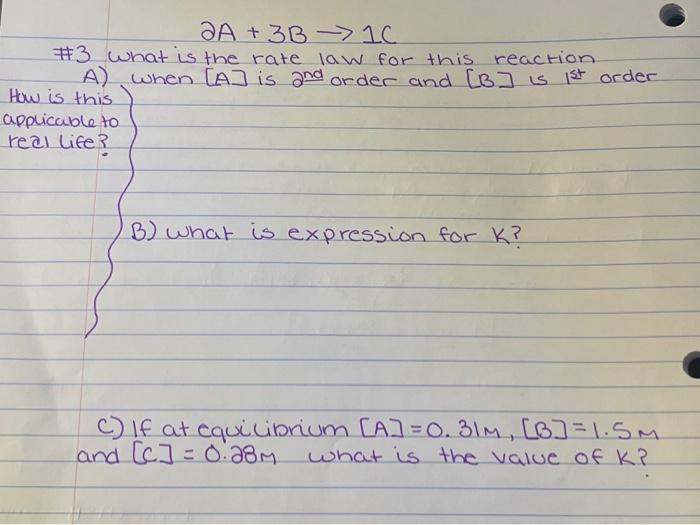 2A + 3B → 1C
#3 what is the rate law for this reaction
A) when [A] is 2nd order and [B] is 1st order
How is this
applicable to
real life?
B) what is expression for K?
C) If at equilibrium [A] = 0.31M, [B] = 1.5M
and [C] = 0.28M what is the value of K?